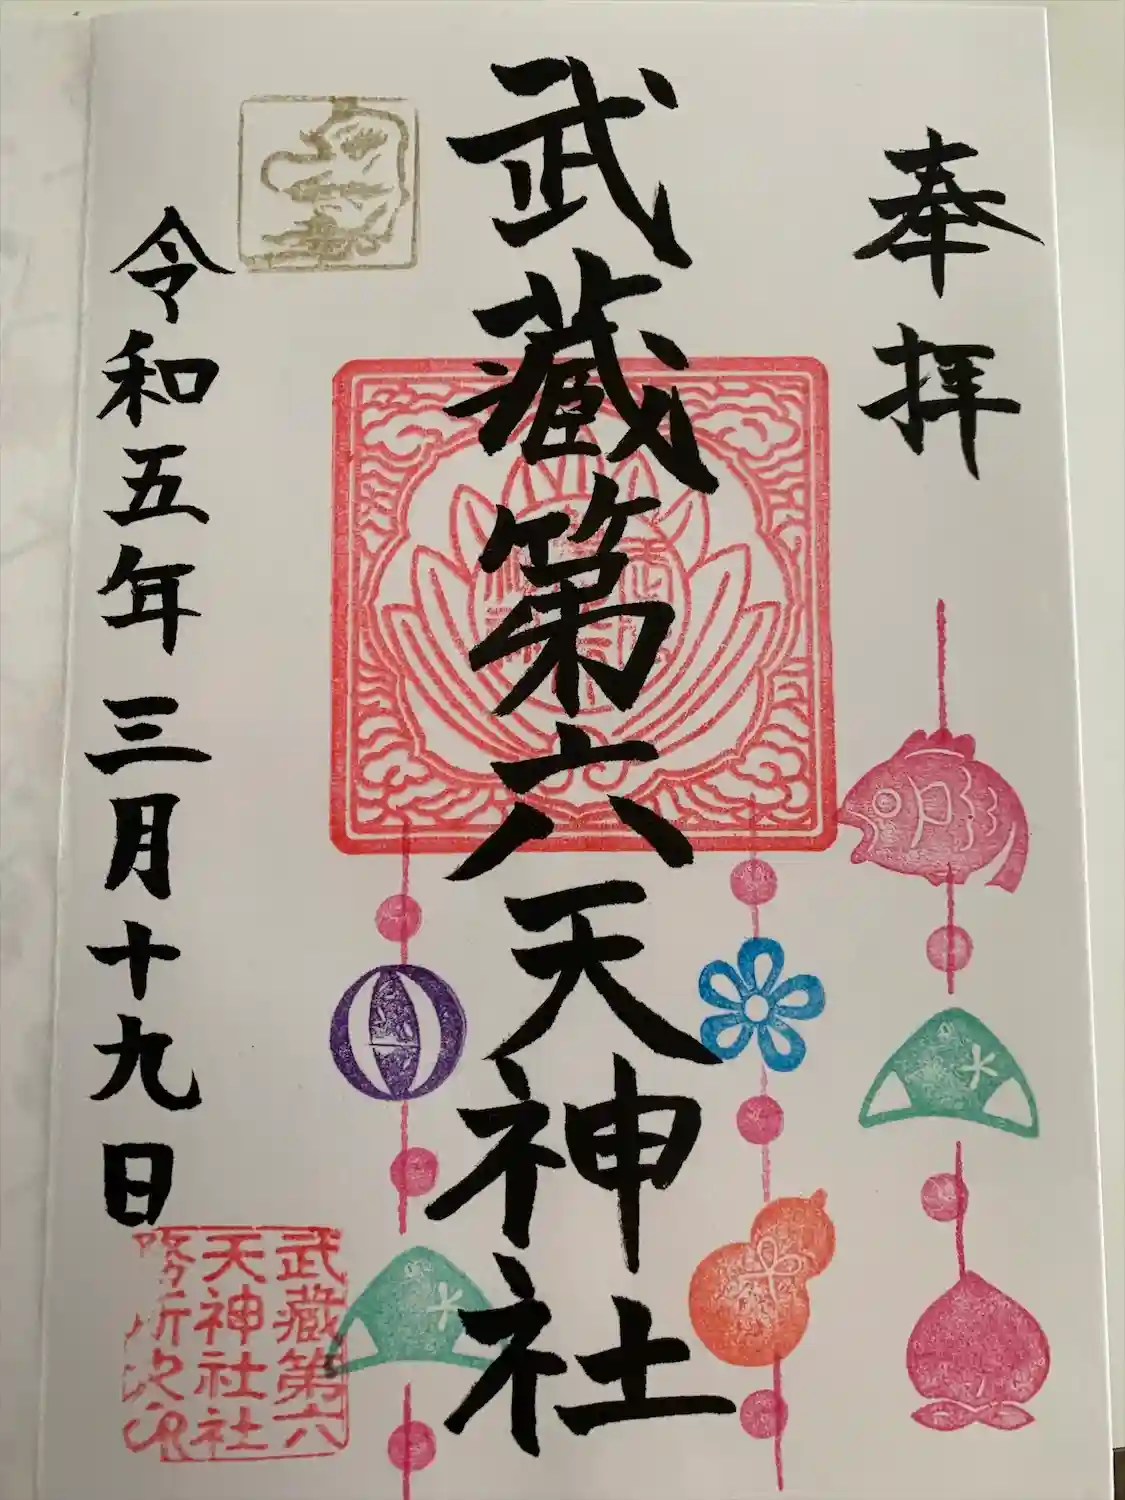 奉拝
武蔵第六天神社
令和五年三月十九日
武蔵第六
天神社社
務所之印